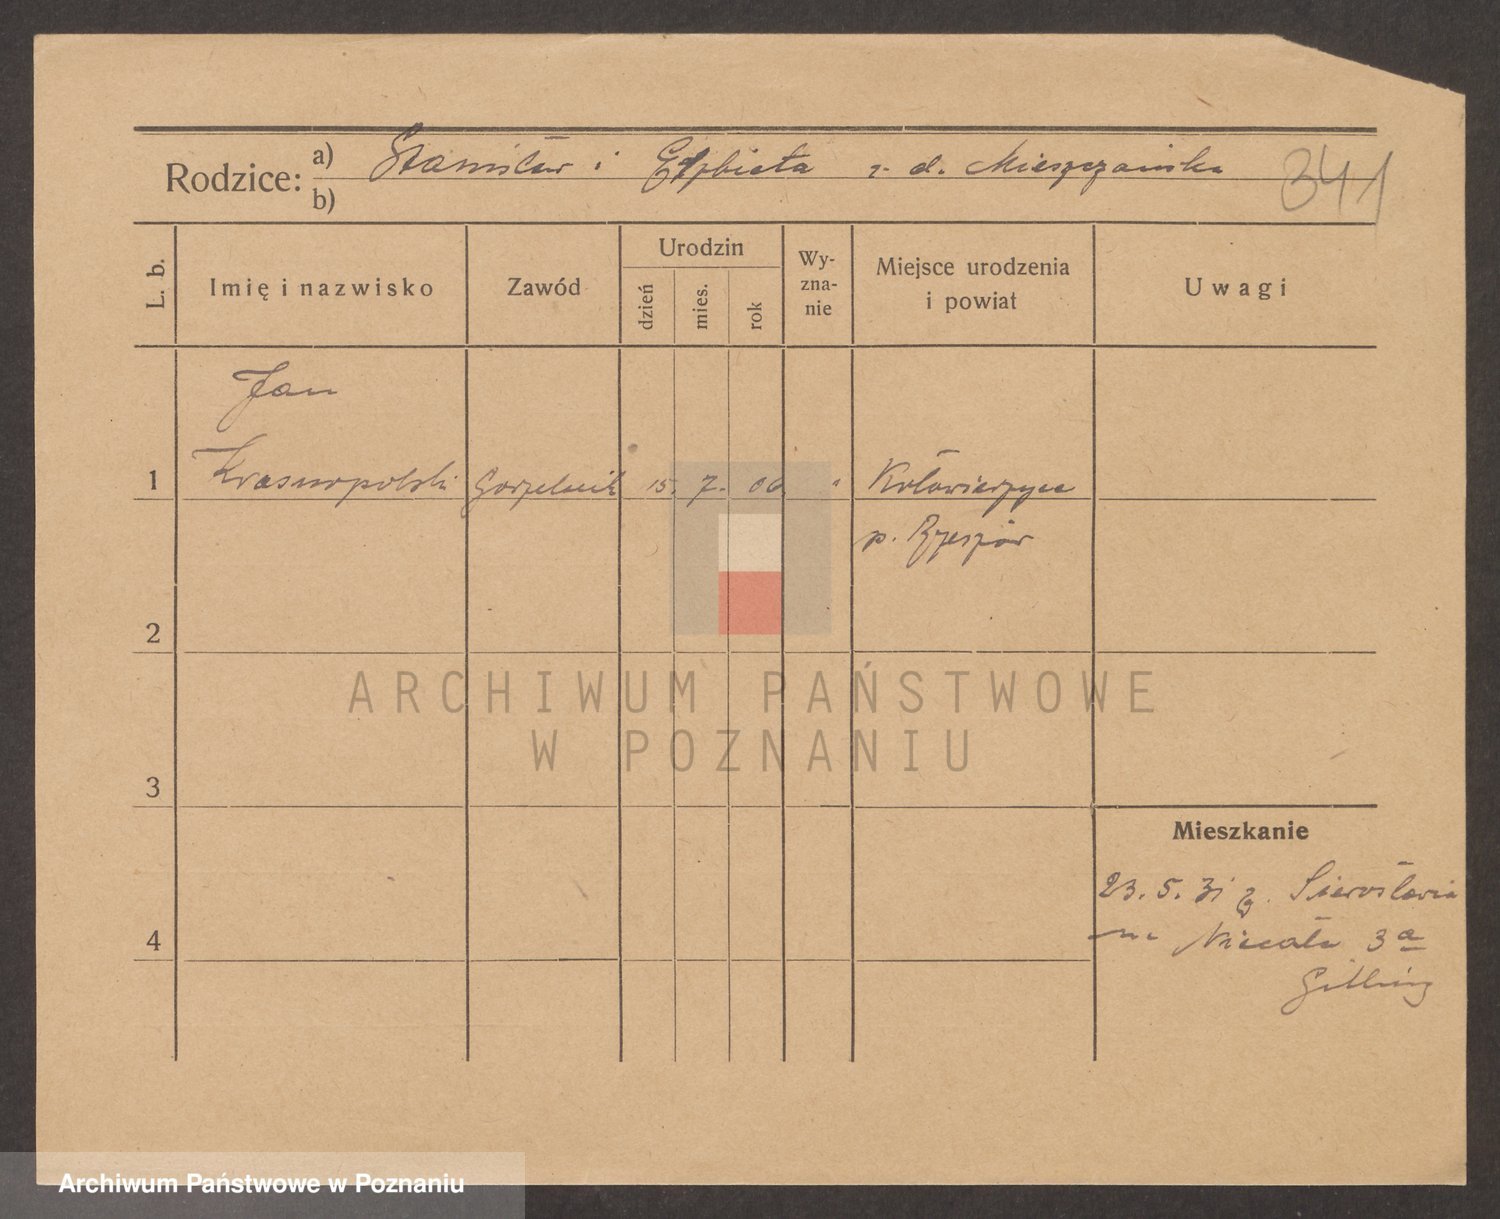 Rodzice: a) Stanisław i Elżbieta z d. Mieszczańska
b)
341
L. b.
Imię i nazwisko
Zawód
Urodzin
dzień
mies.
rok
Wy-
zna-
nie
Miejsce urodzenia
i powiat
Uwagi
Jan
1 Krasnopolski Gorzelnik 15. 7. 06 "
p. Rzeszów
2
3
4
Mieszkanie
23. 5. 31 z Sierosławia
na 3a
ARCHIWUM PAŃSTWOWE
W POZNANIU
Archiwum Państwowe w Poznaniu